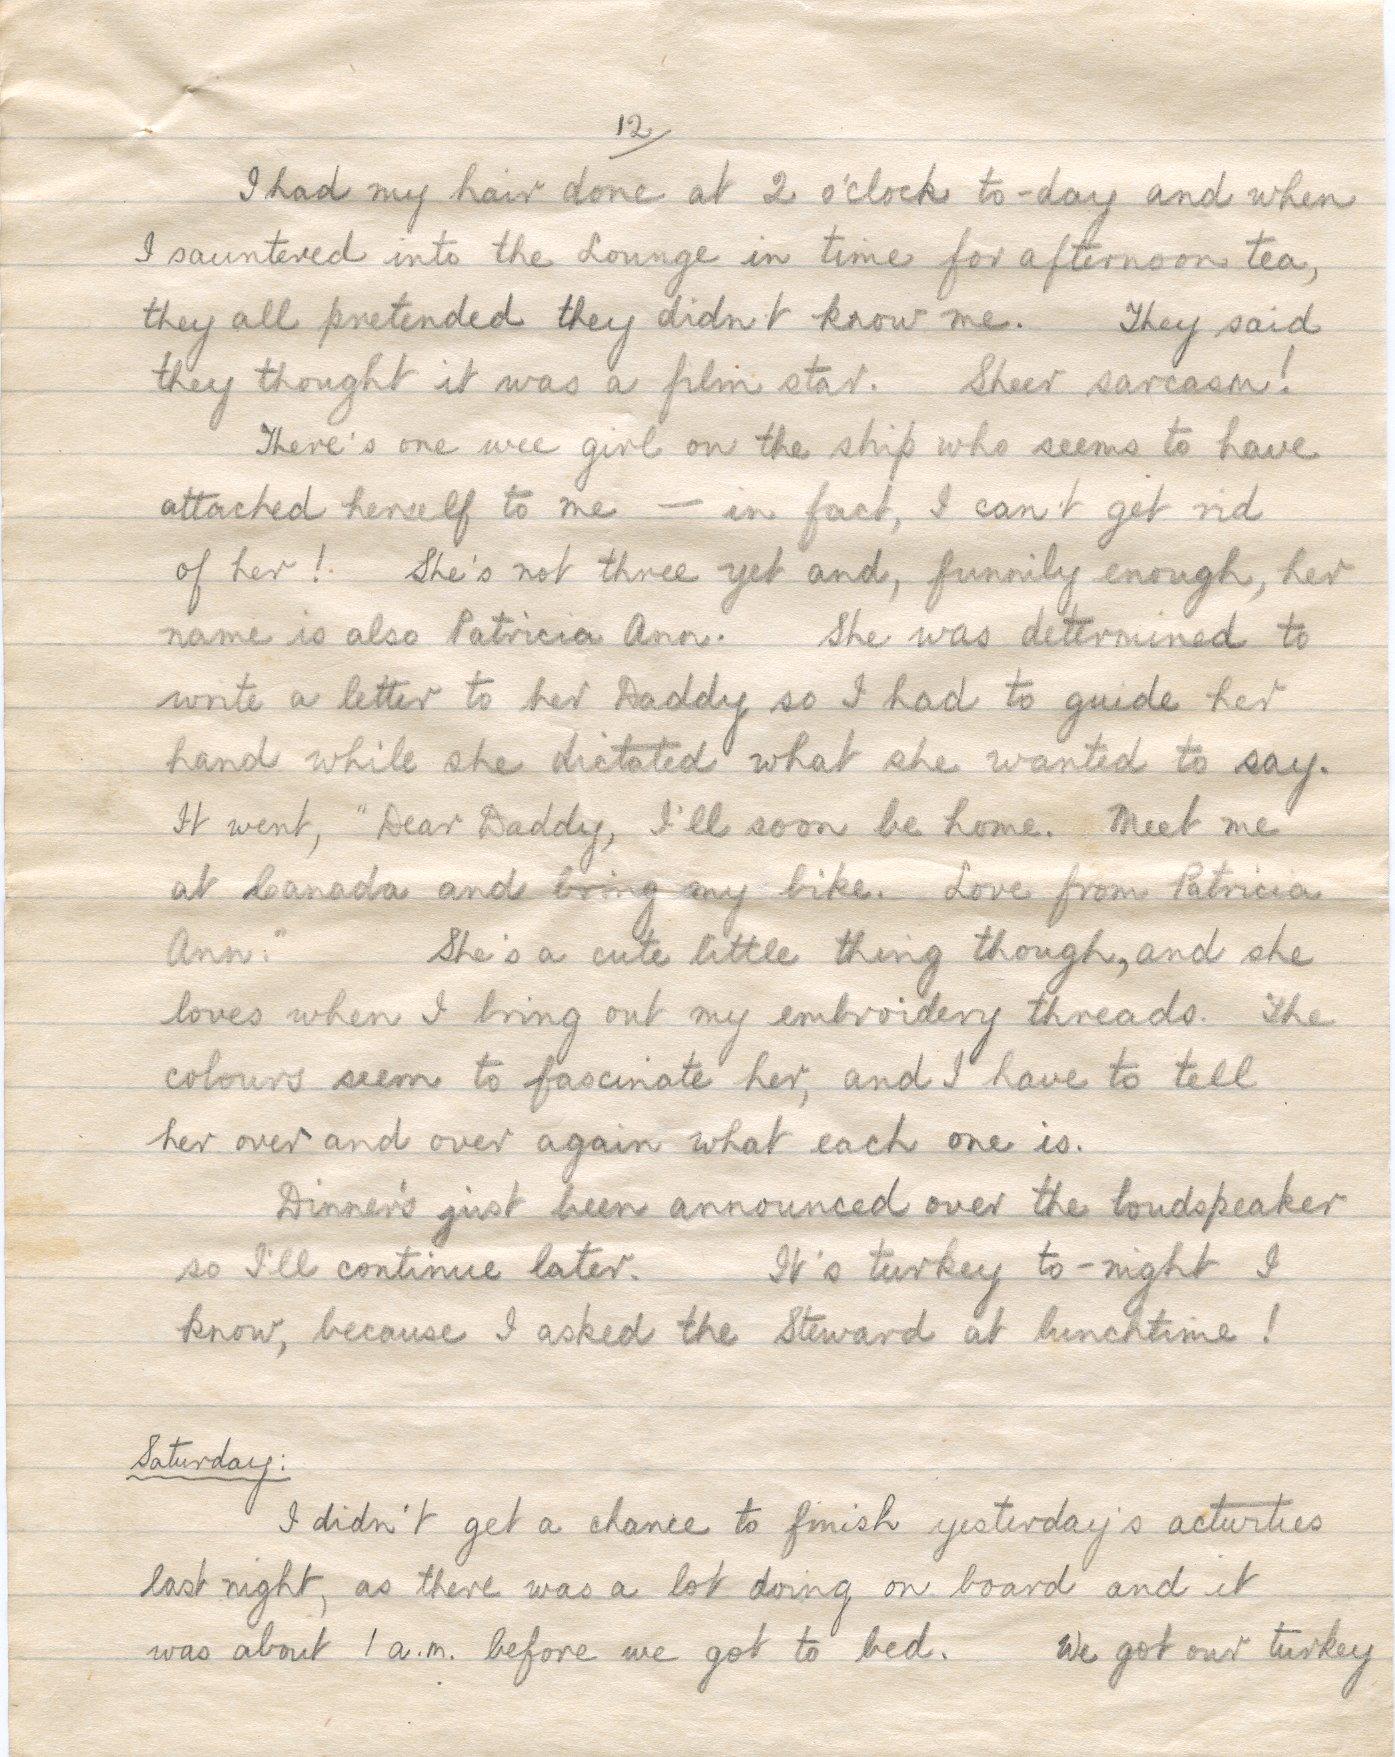 12
I had my hair done at 2 o'clock to-day and when
I sauntered into the Lounge in time for afternoon tea,
they all pretended they didn't know me. They said
they thought it was a film star. Sheer sarcasm!
There's one wee girl on the ship who seems to have
attached herself to me — in fact, I can't get rid
of her! She's not three yet and, funnily enough, her
name is also Patricia Ann. She was determined to
write a letter to her Daddy so I had to guide her
hand while she dictated what she wanted to say.
It went, "Dear Daddy, I'll soon be home. Meet me
at Canada and bring my bike. Love from Patricia
Ann." She's a cute little thing though, and she
loves when I bring out my embroidery threads. The
colours seem to fascinate her, and I have to tell
her over and over again what each one is.
Dinner's just been announced over the loudspeaker
so I'll continue later. It's turkey to-night I
know, because I asked the Steward at lunchtime!
Saturday:
I didn't get a chance to finish yesterday's activities
last night, as there was a lot doing on board and it
was about 1 a.m. before we got to bed. We got our turkey